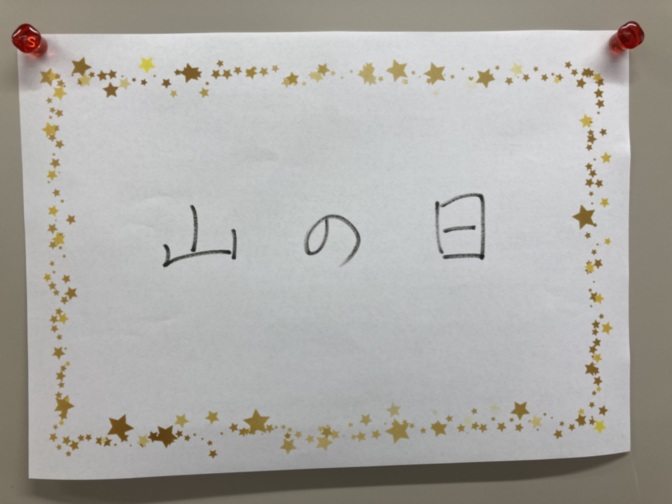 山の日